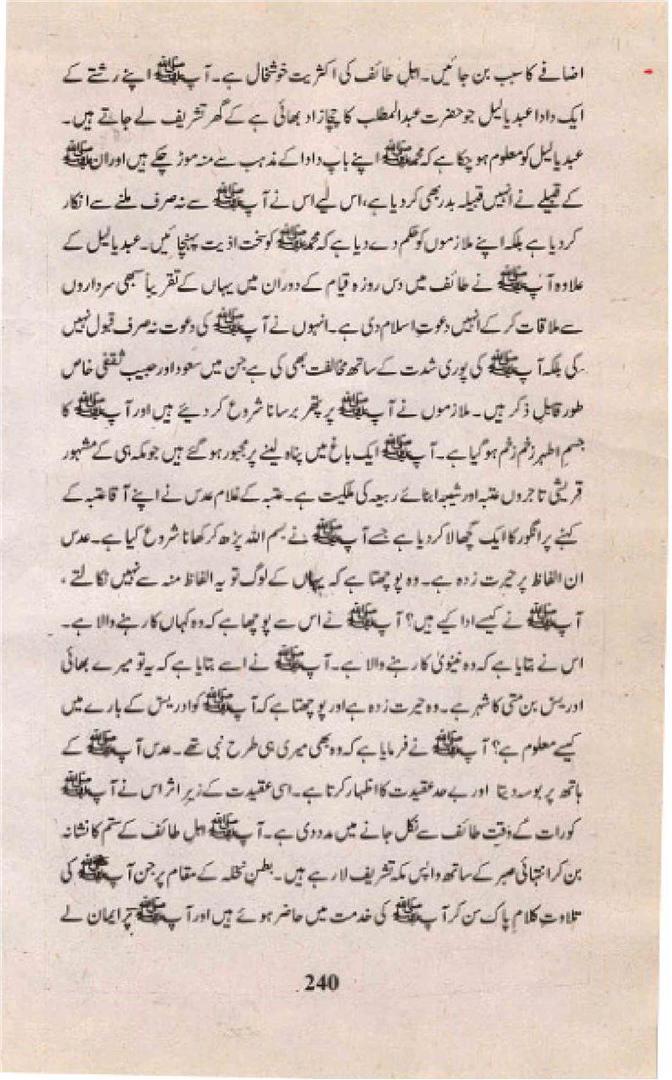 اضافے کا سبب بن جائیں۔ اہلِ طائف کی اکثریت خوشحال ہے۔ آپ ﷺ اپنے رشتے کے
ایک دادا عبدیالیل جو حضرت عبدالمطلب کا چچازاد بھائی ہے کے گھر تشریف لے جاتے ہیں۔
عبدیالیل کو معلوم ہو چکا ہے کہ محمد ﷺ اپنے باپ دادا کے مذہب سے منہ موڑ چکے ہیں اور ان ﷺ
کے قبیلے نے انہیں قبیلہ بدر بھی کر دیا ہے، اس لیے اس نے آپ ﷺ سے نہ صرف ملنے سے انکار
کر دیا ہے بلکہ اپنے ملازموں کو حکم دے دیا ہے کہ محمد ﷺ کو سخت اذیت پہنچائیں۔ عبدیالیل کے
علاوہ آپ ﷺ نے طائف میں دس روزہ قیام کے دوران میں یہاں کے تقریباً سبھی سرداروں
سے ملاقات کر کے انہیں دعوتِ اسلام دی ہے۔ انہوں نے آپ ﷺ کی دعوت نہ صرف قبول نہیں
کی بلکہ آپ ﷺ کی پوری شدت کے ساتھ مخالفت بھی کی ہے جن میں سعود اور حبیب ثقفی خاص
طور قابلِ ذکر ہیں۔ ملازموں نے آپ ﷺ پر پتھر برسانا شروع کر دیئے ہیں اور آپ ﷺ کا
جسمِ اطہر زخم زخم ہو گیا ہے۔ آپ ﷺ ایک باغ میں پناہ لینے پر مجبور ہو گئے ہیں جو مکہ ہی کے مشہور
قریشی تاجروں عتبہ اور شیبہ ابنائے ربیعہ کی ملکیت ہے۔ عتبہ کے غلام عدس نے اپنے آقا عتبہ کے
کہنے پر انگور کا ایک گچھا لا کر دیا ہے جسے آپ ﷺ نے بسم اللہ پڑھ کر کھانا شروع کیا ہے۔ عدس
ان الفاظ پر حیرت زدہ ہے۔ وہ پوچھتا ہے کہ یہاں کے لوگ تو یہ الفاظ منہ سے نہیں نکالتے،
آپ ﷺ نے کیسے ادا کیے ہیں؟ آپ ﷺ نے اس سے پوچھا ہے کہ وہ کہاں کا رہنے والا ہے۔
اس نے بتایا ہے کہ وہ نینویٰ کا رہنے والا ہے۔ آپ ﷺ نے اسے بتایا ہے کہ یہ تو میرے بھائی
ادریس بن متی کا شہر ہے۔ وہ حیرت زدہ ہے اور پوچھتا ہے کہ آپ ﷺ کو ادریس کے بارے میں
کیسے معلوم ہے؟ آپ ﷺ نے فرمایا ہے کہ وہ بھی میری ہی طرح نبی تھے۔ عدس آپ ﷺ کے
ہاتھ پر بوسہ دیتا اور بے حد عقیدت کا اظہار کرتا ہے۔ اسی عقیدت کے زیرِ اثر اس نے آپ ﷺ
کو رات کے وقت طائف سے نکل جانے میں مدد دی ہے۔ آپ ﷺ اہلِ طائف کے ستم کا نشانہ
بن کر انتہائی صبر کے ساتھ واپس مکہ تشریف لا رہے ہیں۔ بطنِ نخلہ کے مقام پر جن آپ ﷺ کی
تلاوتِ کلامِ پاک سن کر آپ ﷺ کی خدمت میں حاضر ہوئے ہیں اور آپ ﷺ پر ایمان لے
240